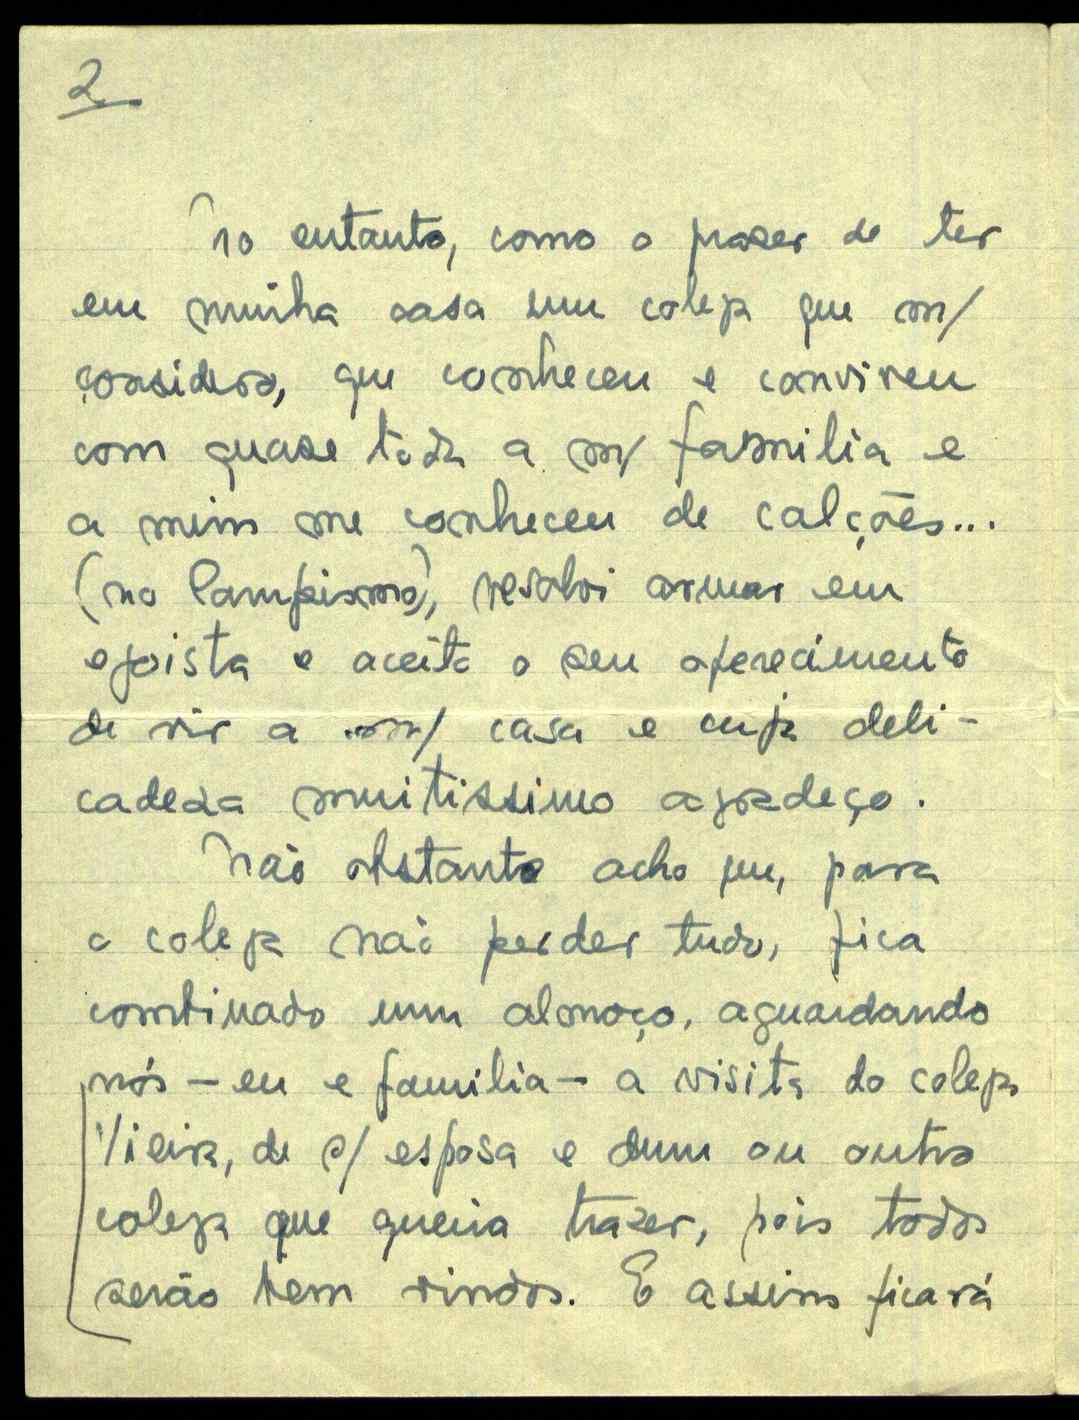 2
No entanto, como o prazer de ter
em minha casa um colega que m/
considero, que conheceu e conviveu
com quase toda a m/ familia e
a mim me conheceu de calções...
(no Campismo), resolvi armar em
egoista e aceito o seu oferecimento
de vir a m/ casa e cuja deli-
cadeza muitissimo agradeço.
Não obstante acho que, para
o colega não perder tudo, fica
combinado um almoço, aguardando
nós – eu e familia – a visita do colega
Vieira, de s/ esposa e dum ou outro
colega que queira trazer, pois todos
serão bem vindos. E assim ficará